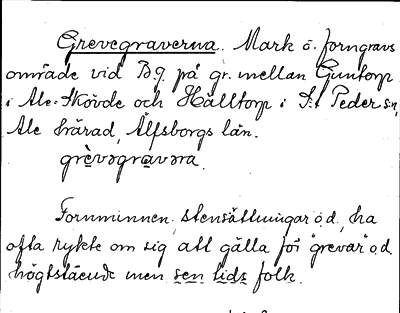 Grevegraverna. Mark o. forngravs
område vid B.9. på gr. mellan Guntorp
i Ale-Skövde och Hälltorp i S:t Peder sn,
Ale härad, Älfsborgs län.
grèvəgravəra.
Fornminnen, stensättningar o.d., ha
ofta rykte om sig att gälla för "grevar" o.d.
högtstående men sen tids folk.